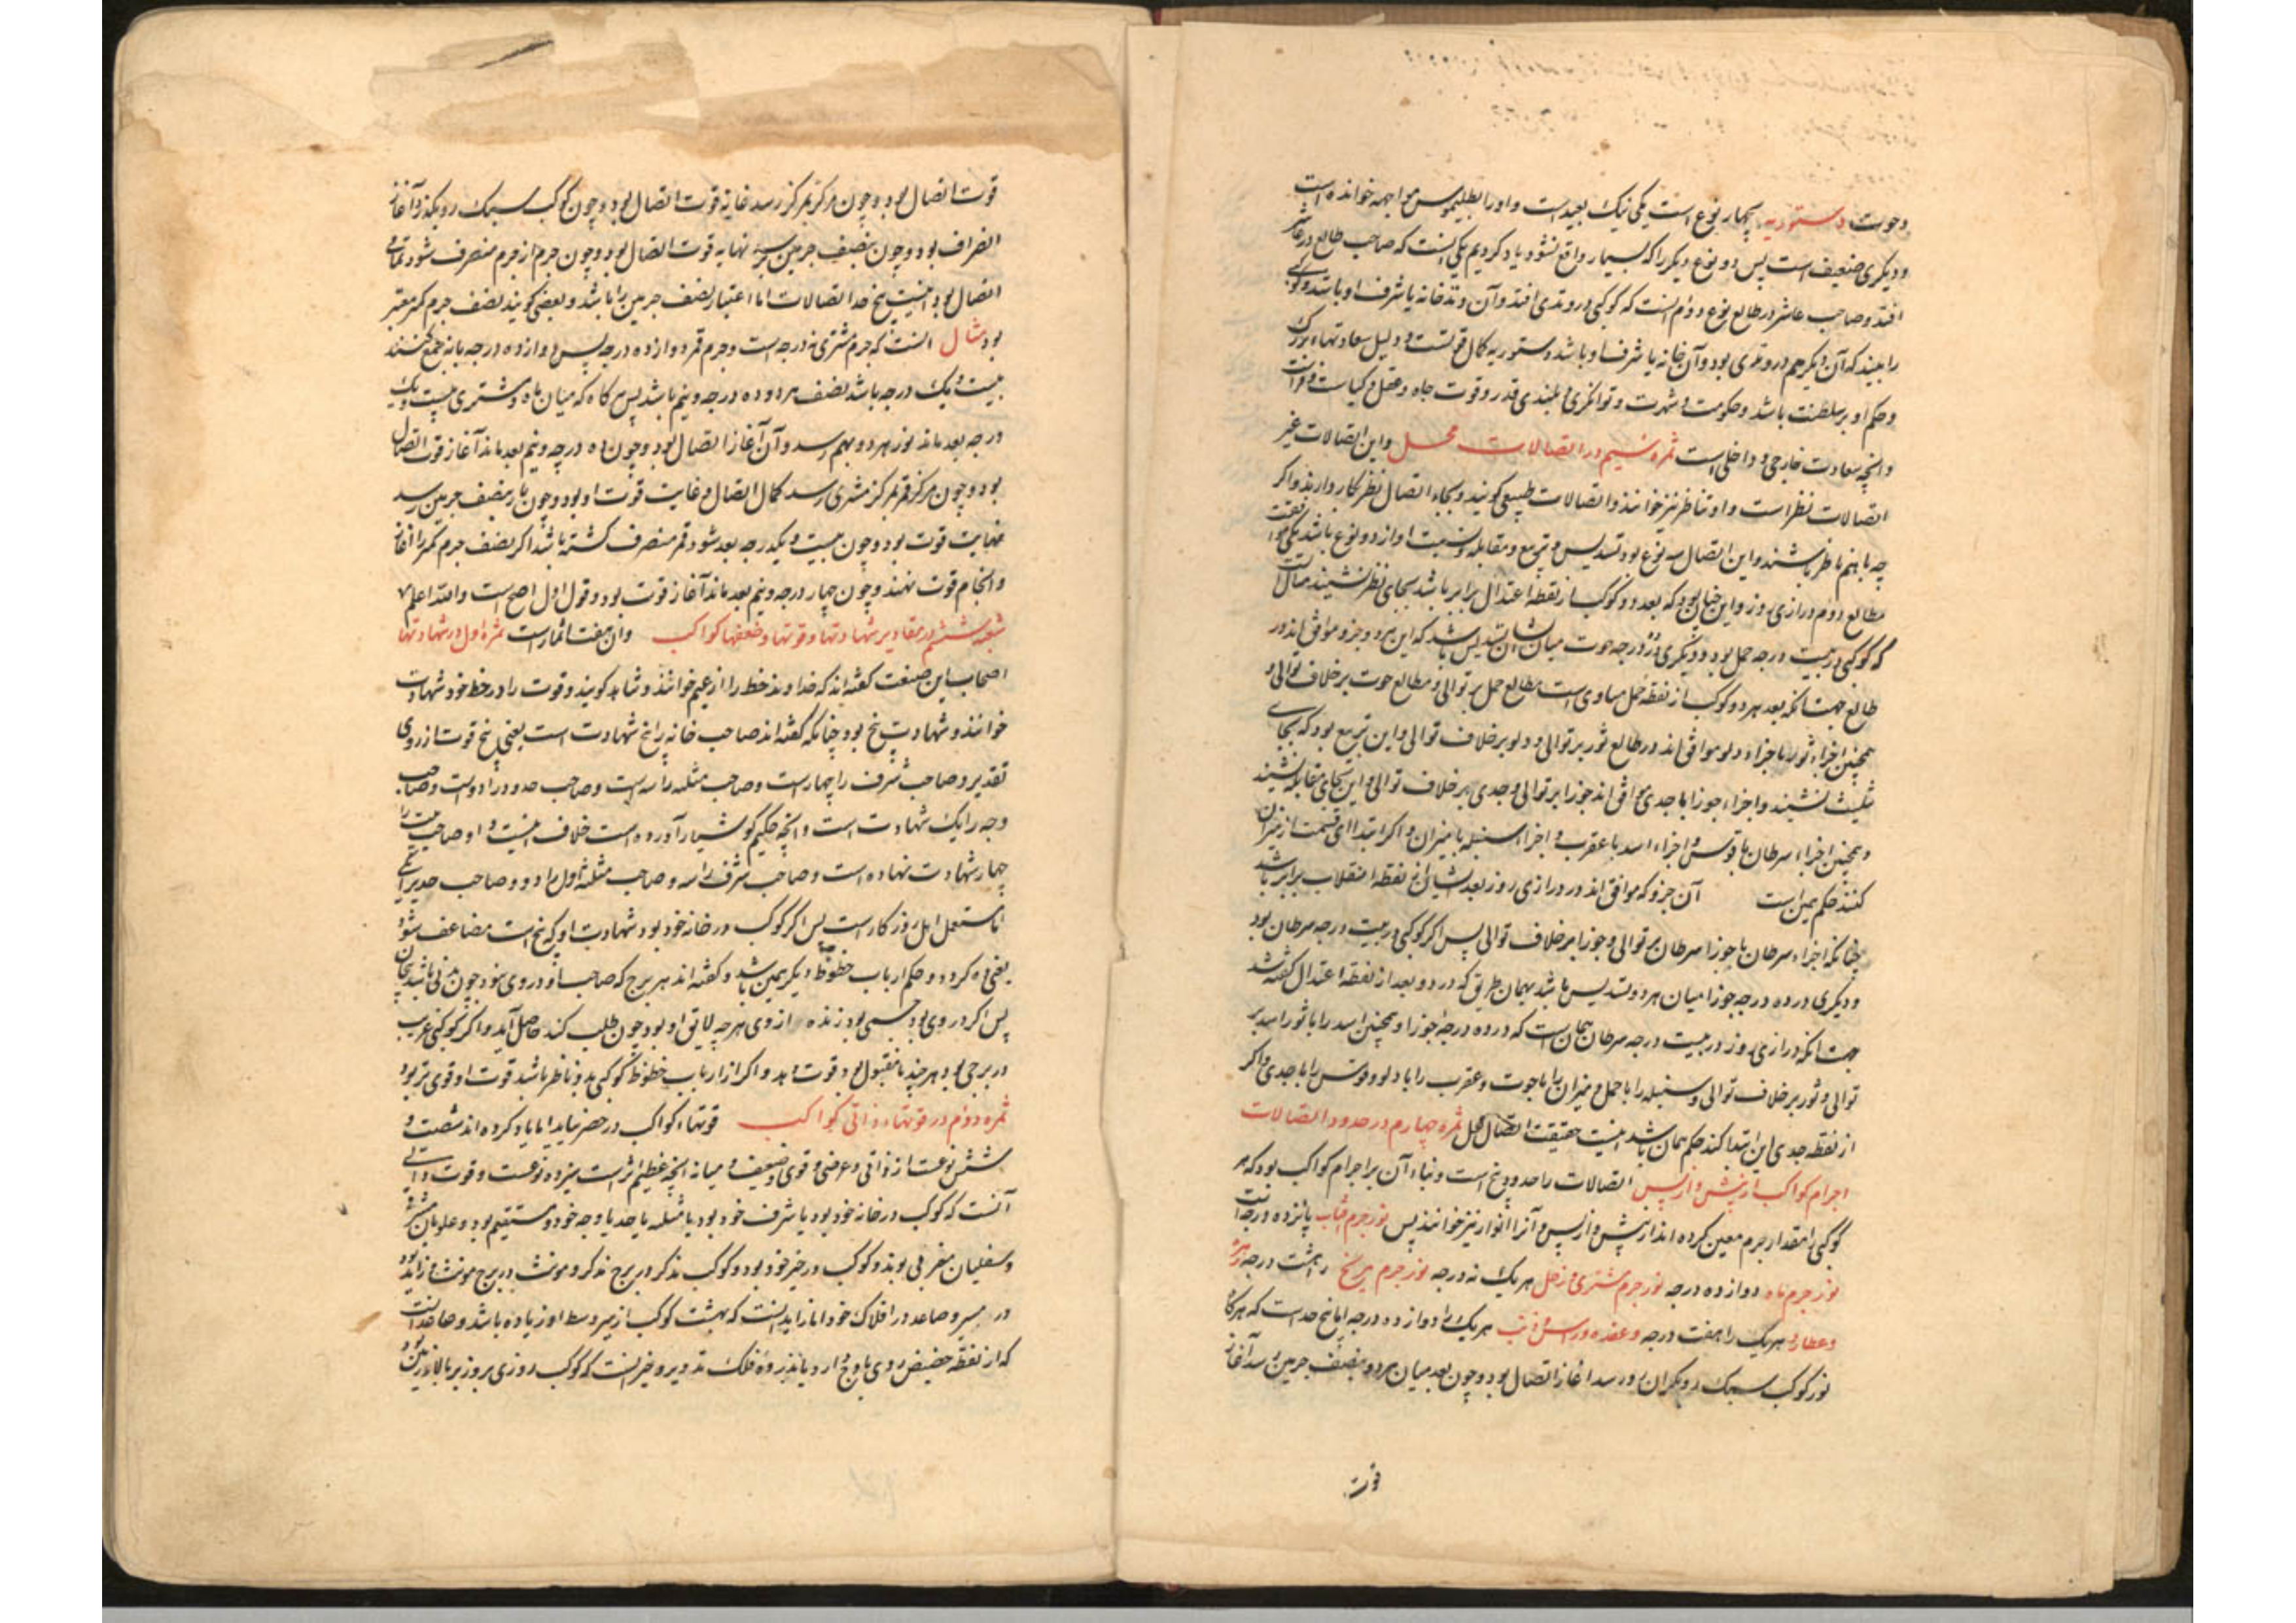 وحوت دستوریه چهار نوع است یکی نیک بعید است و او را بطلیموس مواجهه خوانده است
و دیگری ضعیف است پس دو نوع دیگر را که بسیار واقع نشود یاد کردیم یکی آنست که صاحب طالع در عاشر
افتد و صاحب عاشر در طالع نوع دوم آنست که کوکبی در وتدی افتد و آن وتد خانه یا شرف او باشد و کوکبی
را بیند که آن دیگر هم در وتدی بود و آن خانه یا شرف او باشد دستوریه کمال قوتست و دلیل سعادتهاء بزرک
و حکم او بر سلطنت باشد و حکومت و شهرت و توانگری و بلندی قدر و قوت جاه و عقل و کیاست و فراست
و آنچه سعادت خارجی و داخلی است ثمره سیم در اتصالات محل و این اتصالات غیر
اتصالات نظر است و او تناظر نیز خوانند و اتصالات طبیعی کویند و بجاء اتصال نظر بکار دارند و اکر
چه باهم ناظر نباشند و این اتصال سه نوع بود تسدیس و تربیع و مقابله و نسبت او از دو نوع باشد یکی موافقت
مطالع دوم درازی روز و این چنان بود که بعد دو کوکب از نقطه اعتدال برابر باشد بجای نظر نشیند مثالش
که کوکبی در بیست درجه حمل بود و دیگری در ده درجه حوت میان ایشان تسدیس باشد که این هر دو جزو موافق اند در
طالع جهت آنکه بعد هر دو کوکب از نقطه حمل مساوی است مطالع حمل بر توالی و مطالع حوت بر خلاف توالی و
همچنین اجزاء ثور با اجزاء دلو موافق اند در طالع ثور بر توالی و دلو بر خلاف توالی و این تربیع بود که بجای
تثلیث نشیند و اجزاء جوزا با جدی موافق اند جوزا بر توالی و جدی بر خلاف توالی و این بجای مقابله نشیند
و همچنین اجزاء سرطان با قوس و اجزاء اسد با عقرب و اجزاء سنبله با میزان و اکر ابتداء قسمت از میزان
کنند حکم همین است آن جزو که موافق اند در درازی روز بعد ایشان از نقطه انقلاب برابر باشد
چنانکه اجزاء سرطان با جوزا سرطان بر توالی و جوزا بر خلاف توالی پس اکر کوکبی در بیست درجه سرطان بود
و دیگری در ده درجه جوزا میان هر دو تسدیس باشد بهمان طریق که در دو بعد از نقطه اعتدال کفته شد
جهت آنکه درازی روز در بیست درجه سرطان چنان است که در ده درجه جوزا و همچنین اسد را با ثور اسد بر
توالی و ثور بر خلاف توالی و سنبله را با حمل و میزان را با حوت و عقرب را با دلو و قوس را با جدی و اکر
از نقطه جدی این ابتدا کنند حکم همان باشد اینست حقیقت اتصال محل ثمره چهارم در حدود اتصالات
اجرام کواکب از پیش و از پس اتصالات را حدود پنج است و بناء آن بر اجرام کواکب بود که هر
کوکبی را مقدار جرم معین کرده اند از پیش و از پس و آنرا انوار نیز خوانند پس نور جرم آفتاب پانزده درجه است
نور جرم ماه دوازده درجه نور جرم مشتری و زحل هر یک نه درجه نور جرم مریخ هشت درجه زهره
و عطارد هر یک را هفت درجه و عقده راس و ذنب هر یک را دوازده درجه اما پنج حد است که هر کاه
نور کوکب سبک رو بکران رو رسد آغاز اتصال بود و چون بعد میان هر دو بنصف جرمین رسد آغاز
قوت
قوت اتصال بود و چون مرکز بمرکز رسد غایة قوت اتصال بود و چون کوکب سبک رو بگذرد آغاز
انصراف بود و چون بنصف جرمین رسد نهایه قوت اتصال بود و چون جرم از جرم منصرف شود تمامی
اتصال بود اینست پنج حد اتصالات اما اعتبار نصف جرمین را باشد و بعضی کویند نصف جرم کمتر معتبر
بود مثال آنست که جرم مشتری نه درجه است و جرم قمر دوازده درجه پس دوازده درجه با نه جمع کنند
بیست و یک درجه باشد نصف هر دو ده درجه و نیم باشد پس هر کاه که میان ماه و مشتری بیست و یک
درجه بعد ماند نور هر دو بهم رسد و آن آغاز اتصال بود و چون ده درجه و نیم بعد ماند آغاز قوت اتصال
بود و چون مرکز قمر بمرکز مشتری رسد کمال اتصال و غایت قوت او بود و چون باز بنصف جرمین رسد
نهایت قوت بود و چون بیست و یکدرجه بعد شود قمر منصرف کشته باشد اکر نصف جرم کمتر را آغاز
و انجام قوت نهند و چون چهار درجه و نیم بعد ماند آغاز قوت بود و قول اول اصح است والله اعلم
شعبه ششم در مقادیر شهادتها و قوتها و ضعفها کواکب و آن هفت اثمار است ثمره اول در شهادتها
اصحاب این صنعت کفته اند که خداوند خط را زعیم خوانند و شاهد کویند و قوت را در خط خود شهادت
خوانند و شهادت پنج بود چنانکه کفته اند صاحب خانه را پنج شهادت است یعنی پنج قوت از روی
تقدیر و صاحب شرف را چهار است و صاحب مثلثه را سه است و صاحب حدود را دو است و صاحب
وجه را یک شهادت است و آنچه حکیم کوشیار آورده است خلاف اینست و او صاحب بیت را
چهار شهادت نهاده است و صاحب شرف را سه و صاحب مثلثه اول را دو و صاحب حد را یکی
اما مستعمل اهل روزکار است پس اکر کوکب در خانه خود بود شهادت او که پنج است مضاعف شود
یعنی ده کردد و حکم ارباب حظوظ دیگر همین باشد و کفته اند هر برج که صاحب او در وی نبود چون تنی باشد بیجان
پس اکر در وی بود جسمی بود زنده از وی هر چه لایق او بود چون طلب کند حاصل آید و اکر کوکبی غریب
در برجی بود هر چند نامقبول بود قوت دهد و اکر از ارباب حظوظ کوکبی بدو ناظر باشد قوت او قوی تر بود
ثمره دوم در قوتهاء ذاتی کواکب قوتهاء کواکب در حصر نیاید اما یاد کرده اند شصت و
شش نوعست از ذاتی و عرضی و قوی و ضعیف و میانه آنچه عظیم تر است سیزده نوعست و قوت ذاتی
آنست که کوکب در خانه خود بود یا شرف خود بود یا مثلثه یا حد یا وجه خود و مستقیم بود و علویان مشرقی
و سفلیان مغربی بوند و کوکب در حیز خود بود و کوکب مذکر در برج مذکر و مونث در برج مونث و زاید بود
در سیر و صاعد در افلاک خود اما زاید آنست که بهت کوکب از سیر وسط او زیاده باشد و صاعد آنست
که از نقطه حضیض روی باوج دارد یا بذروه فلک تدویر و حیز آنست که کوکب روزی بروز بر بالاء زمین بود